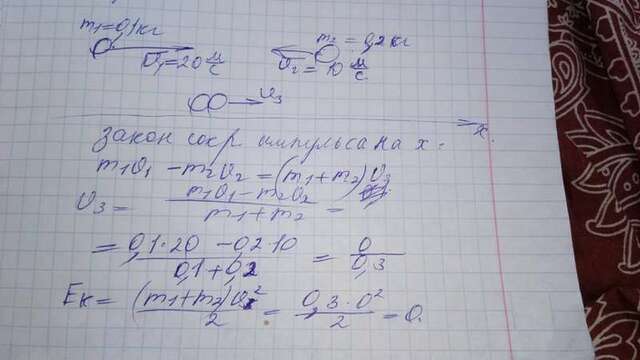 m₁=0,1кг
m₂ = 0,2кг
υ₁=20 м/с
υ₂= 10 м/с
υ₃
x.
закон сохр импульса на x:
m₁υ₁ - m₂υ₂ = (m₁+m₂)υ₃
υ₃ = (m₁υ₁ - m₂υ₂)/(m₁+m₂) =
= (0,1·20 - 0,2·10)/(0,1+0,2) = 0/0,3
Eк = (m₁+m₂)υ²/2 = 0,3·0²/2 = 0.